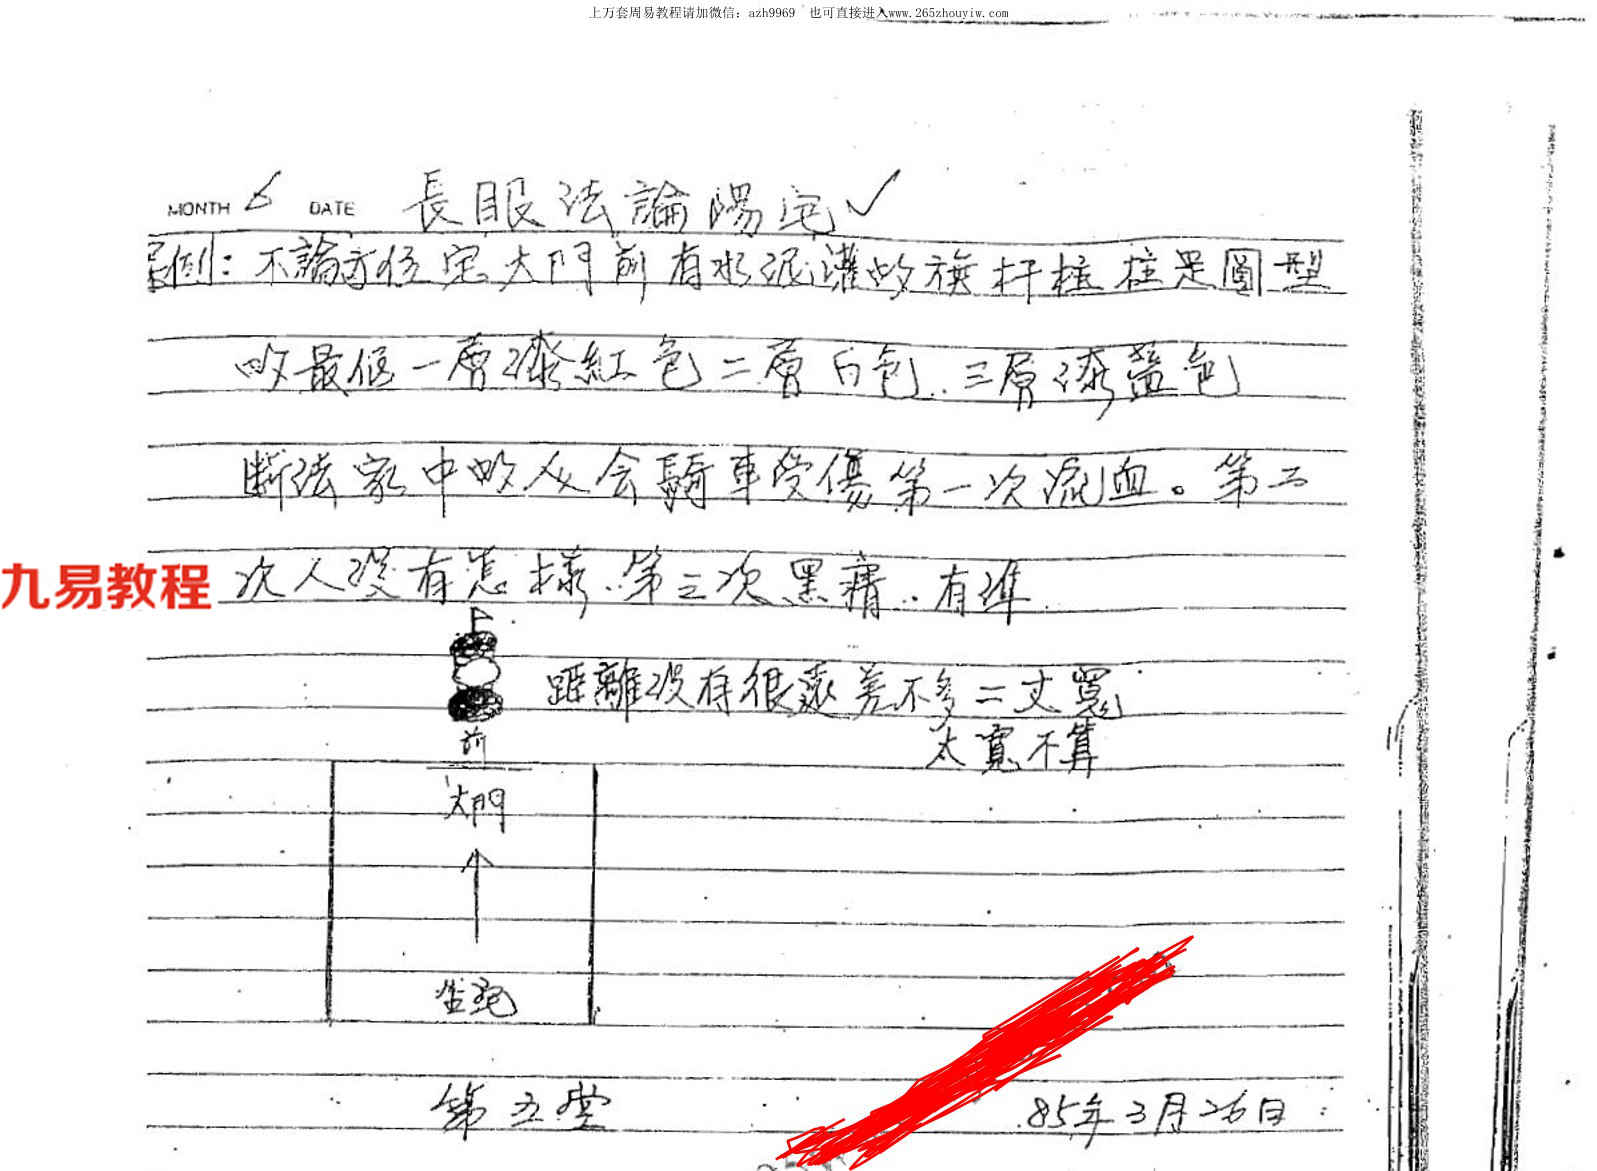 上万套周易教程请加微信: azh9969 也可直接进入www.265zhouyiw.com
MONTH 6 DATE 長眼法論陽宅✓
例:不論方位宅大門前有水泥灌的旗杆柱 柱是圓型
的最低一層漆紅色二層白色.三層漆藍色
断法家中的人会騎車受傷第一次流血。第二
次人沒有怎樣.第三次黑瘠.有準
九易教程
距離沒有很遠差不多二丈寬
太寬不算
前
大門
坐宅
第五堂
85年3月26日